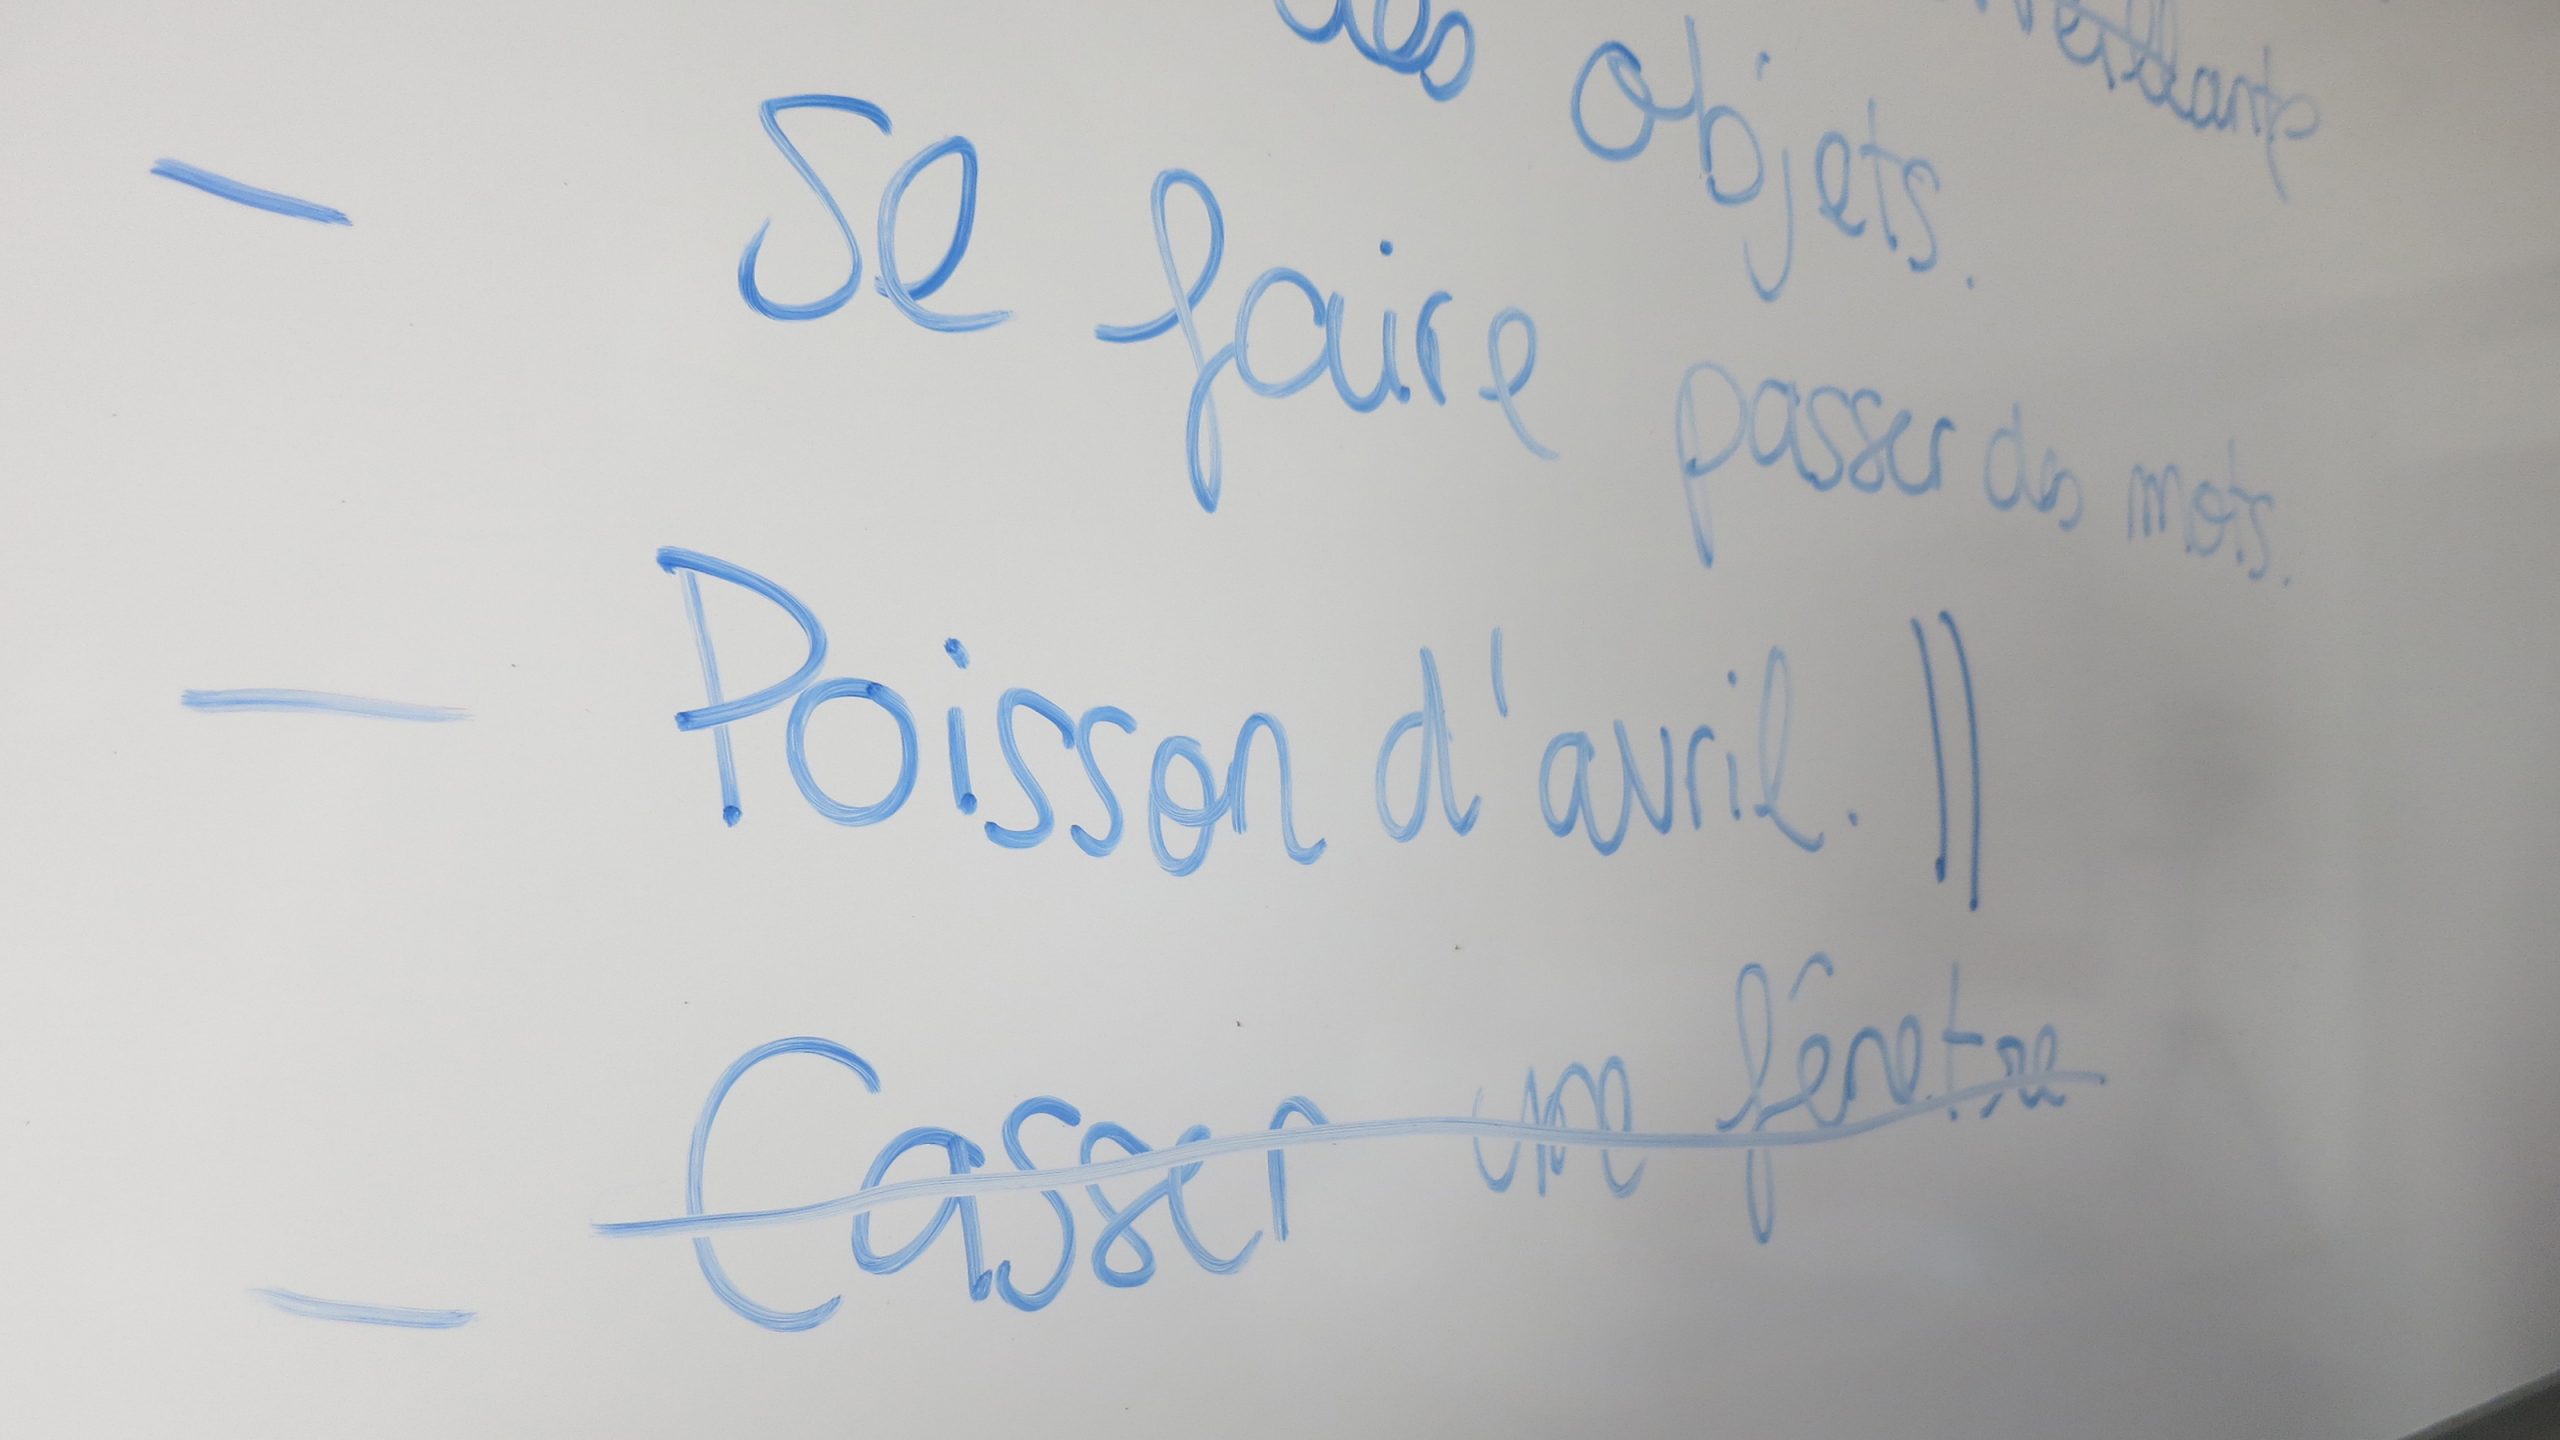 des objets.
- Se faire passer des mots.
- Poisson d'avril. ||
- Casser une fênetre